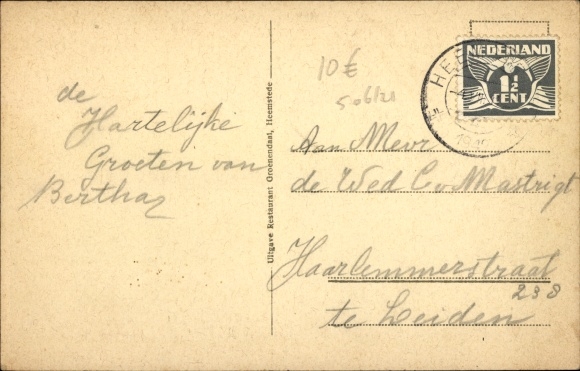 de
Hartelijke
Groeten van
Bertha
Uitgave Restaurant Groenendaal, Heemstede
10€
NEDERLAND
1½
CENT
HEE
Aan Mevr
de Wed C v Mastrigt
Haarlemmerstraat
238
te Leiden